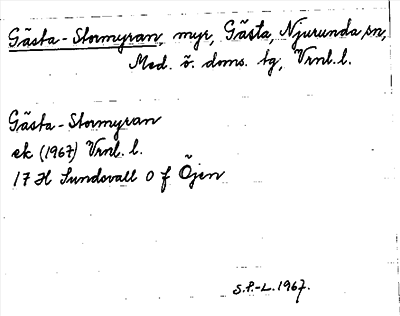 Gästa-Stormyran, myr, Gästa, Njurunda sn,
Med. ö. doms. tg, Vrnl. l.
Gästa-Stormyran
ek (1967) Vrnl. l.
17 H Sundsvall O f Öjen
S.P.-L. 1967.